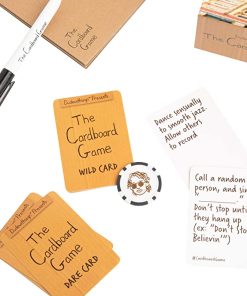 The
Cardboard
Game
The Cardboard Game
The Cardboard
Dudeandthings Presents
The
Cardboard
Game
WILD CARD
Dance sensually
to smooth jazz.
Allow others
to record
Call a random
person, and sing
"________."
Don't stop until
they hang up
(ex: "Don't Stop
Believin'")
#CardboardGame
The
Cardboard
Game
DARE CARD